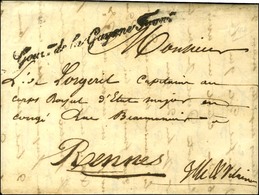 Gouv.t de la Guyane Franc.se
Monsieur
L. de Lorgeril Capitaine au
corps Royal d'Etat major en
congé Rue Beaumanoir
à
Rennes
Ille & Vilaine